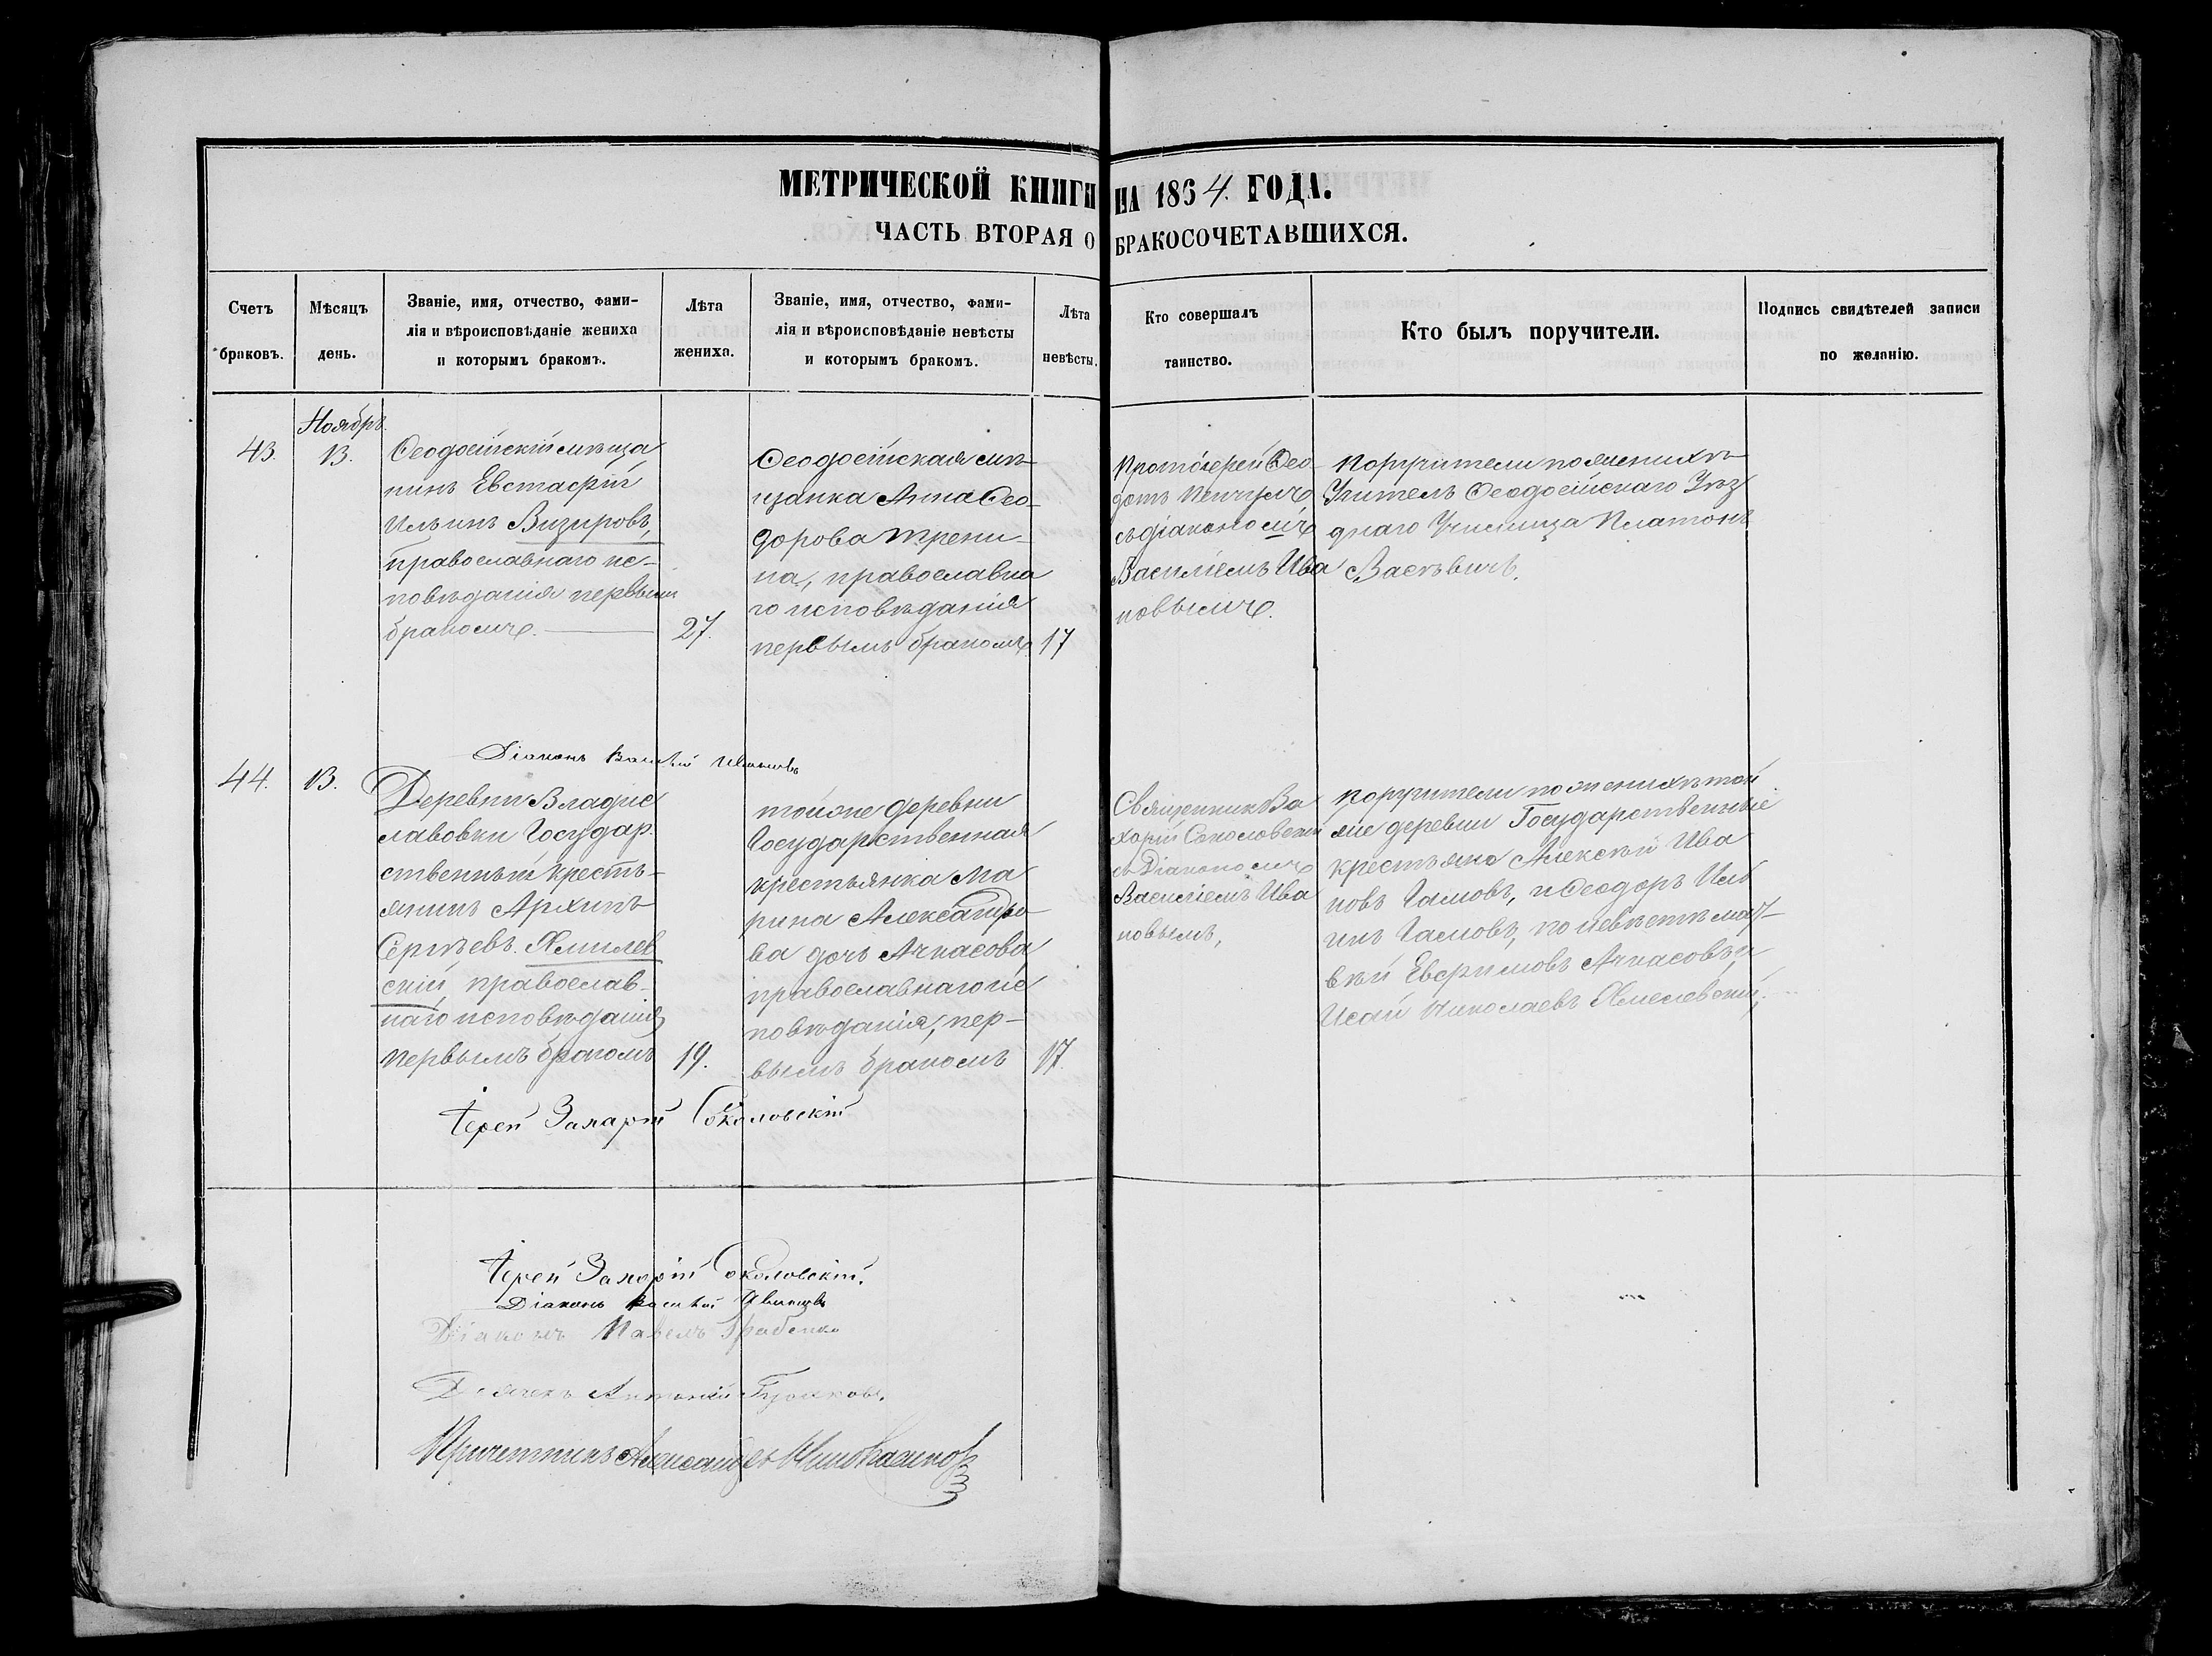 МЕТРИЧЕСКОЙ КНИГИ НА 1864 ГОДА.
ЧАСТЬ ВТОРАЯ О БРАКОСОЧЕТАВШИХСЯ.
Счетъ
браковъ.
Мѣсяцъ
день.
Званіе, имя, отчество, фами-
лія и вѣроисповѣданіе жениха
и которымъ бракомъ.
Лѣта
жениха.
Званіе, имя, отчество, фами-
лія и вѣроисповѣданіе невѣсты
и которымъ бракомъ.
Лѣта
невѣсты.
Кто совершалъ
таинство.
Кто былъ поручители.
Подпись свидѣтелей записи
по желанію.
Ноябрь
43.
13.
Ѳеодосійскій мѣща
нинъ Евстафій
Ильинъ Визировъ,
православнаго ис-
повѣданія первымъ
бракомъ.
27.
Ѳеодосійская мѣ-
щанка Анна Ѳео-
дорова Трени-
на, православна
го исповѣданія
первымъ бракомъ
17
Протоіерей Ѳео-
дотъ
съ діакономъ
Василіемъ Ива
новымъ.
Поручители по женихѣ
Учитель Ѳеодосійскаго Уѣз
днаго Училища Платонъ
Васъвичъ.
Діаконъ Василій Ивановъ
44.
13.
Деревни Владис
лавовки Государ
ственный кресть-
янинъ Архипъ
Сергѣевъ Хмилев
скій, православ-
наго исповѣданія
первымъ бракомъ
19.
тойже деревни
Государственная
крестьянка Ма
рина Александро-
ва дочь Ачкасова
православнаго ис
повѣданія, пер-
вымъ бракомъ
17.
Священникъ За
харій Соколовскій
съ Діакономъ
Василіемъ Ива
новымъ,
поручители по женихѣ той
же деревни Государственные
крестьяне Алексѣй Ива
новъ Гамовъ, и Ѳеодоръ Иль
инъ Гамовъ, по невѣстѣ мат-
вѣй Ефримовъ Ачкасовъ и
Исай Николаевъ Хмелевскій,
Іерей Захарій Соколовскій
Іерей Захарій Соколовскій.
Діаконъ Василій Ивановъ
Діаконъ Павелъ Грабенко
Дьячекъ Антоній
Причетникъ Александръ